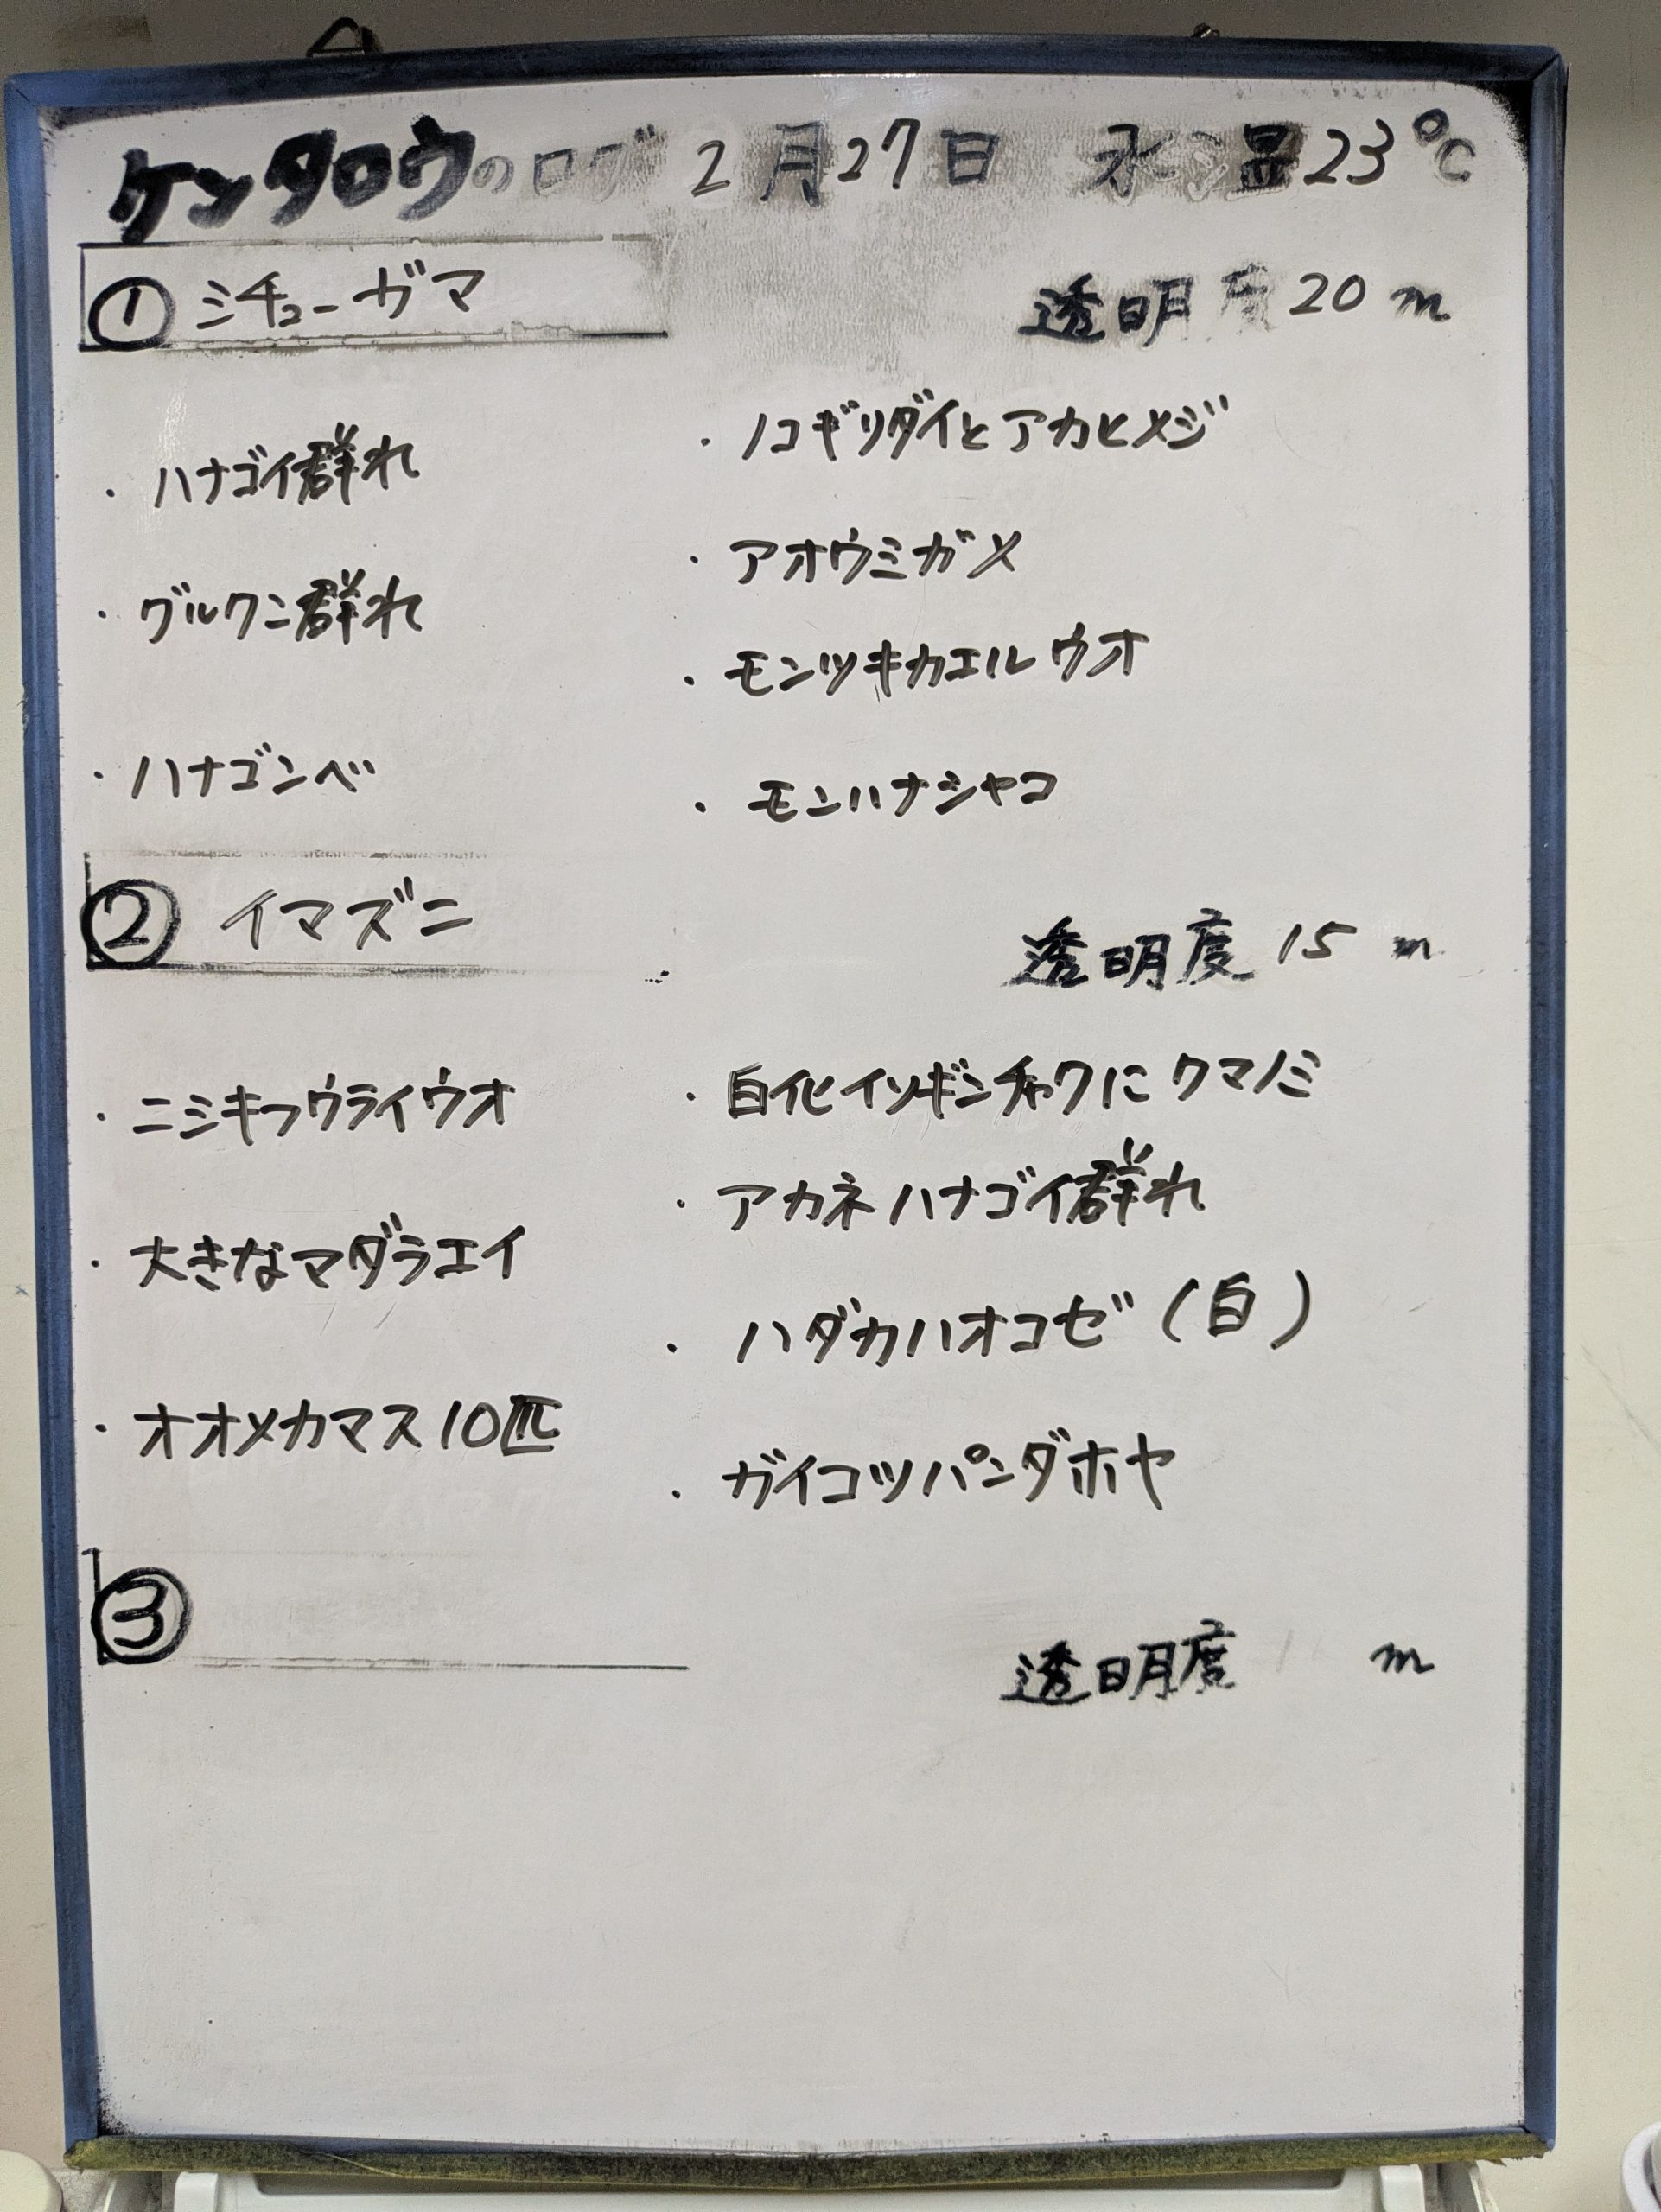 ケンタロウのログ 2月27日 水温23℃
① シチューガマ 透明度20m
・ハナゴイ群れ
・グルクン群れ
・ハナゴンベ
・ノコギリダイとアカヒメジ
・アオウミガメ
・モンツキカエルウオ
・モンハナシャコ
② イマズニ 透明度15m
・ニシキフウライウオ
・大きなマダラエイ
・オオメカマス10匹
・白化イソギンチャクにクマノミ
・アカネハナゴイ群れ
・ハダカハオコゼ(白)
・ガイコツパンダホヤ
③ 透明度 m